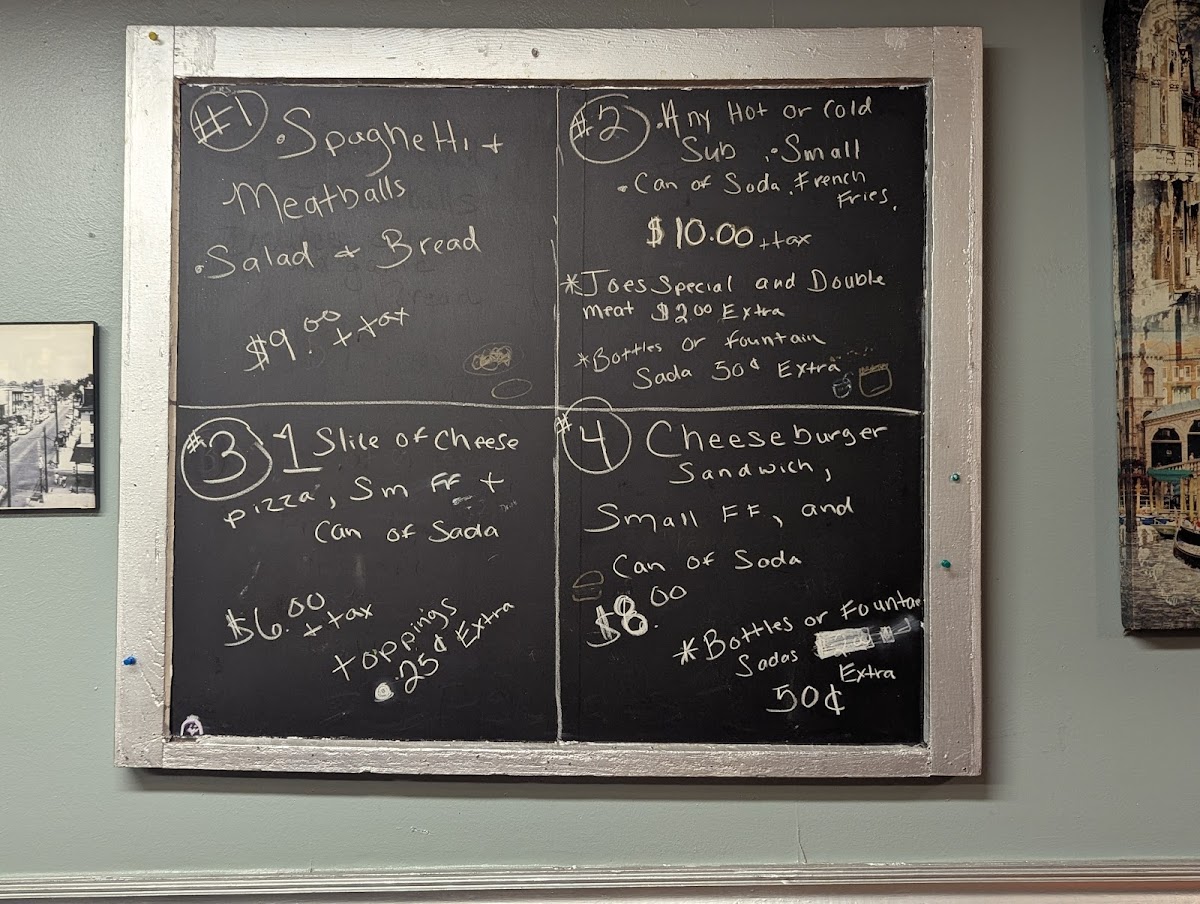 #1 • Spaghetti +
Meatballs
• Salad + Bread
$9.00 + tax
#2 • Any Hot or Cold
Sub • Small
• Can of Soda. French
Fries.
$10.00 + tax
* Joes Special and Double
meat $2.00 Extra
* Bottles or fountain
Sada 50¢ Extra
#3 1 Slice of Cheese
pizza, Sm FF +
Can of Sada
$6.00 + tax
toppings
.25¢ Extra
#4 Cheeseburger
Sandwich,
Small FF, and
Can of Soda
$8.00
* Bottles or Fountae
Sadas
Extra
50¢